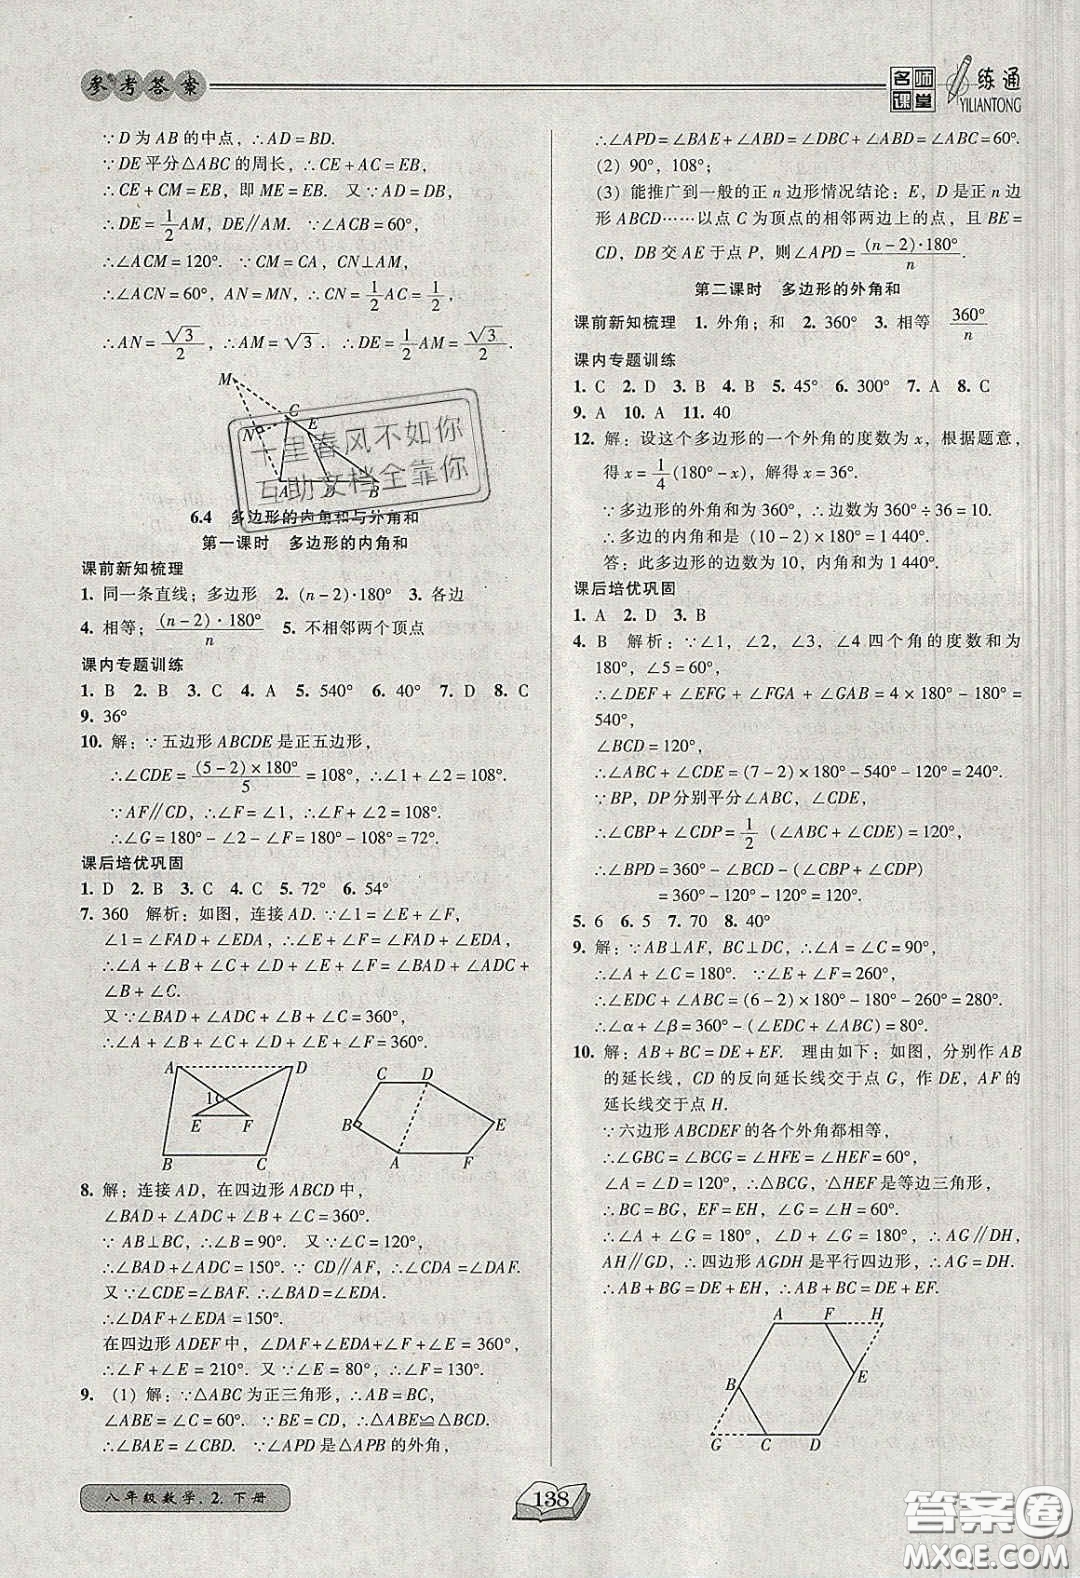 参考答案
名师课堂
一练通
YILIANTONG
∵D 为 AB 的中点，∴AD=BD.
∵DE 平分△ABC 的周长，∴CE+AC=EB，
∴CE+CM=EB，即 ME=EB. 又∵AD=DB，
∴DE=1/2AM，DE∥AM. ∵∠ACB=60°，
∴∠ACM=120°. ∵CM=CA，CN⊥AM，
∴∠ACN=60°，AN=MN，∴CN=1/2AC=1/2.
∴AN=√3/2，∴AM=√3. ∴DE=1/2AM=√3/2.
M
N
C
E
A
D
B
十里春风不如你
互助文档全靠你
6.4 多边形的内角和与外角和
第一课时 多边形的内角和
课前新知梳理
1. 同一条直线；多边形 2. (n-2)·180° 3. 各边
4. 相等；(n-2)·180°/n 5. 不相邻两个顶点
课内专题训练
1. B 2. B 3. C 4. A 5. 540° 6. 40° 7. D 8. C
9. 36°
10. 解：∵五边形 ABCDE 是正五边形，
∴∠CDE=(5-2)×180°/5=108°，∴∠2=108°.
∵AF∥CD，∴∠F=∠1，∴∠F=∠2=108°.
∴∠G=180°-∠2-∠F=180°-108°=72°.
课后培优巩固
1. D 2. B 3. C 4. C 5. 72° 6. 54°
7. 360 解析：如图，连接 AD. ∵∠1=∠E+∠F，
∠1=∠FAD+∠EDA，∴∠E+∠F=∠FAD+∠EDA，
∴∠A+∠B+∠C+∠D+∠E+∠F=∠BAD+∠ADC+
∠B+∠C.
又∵∠BAD+∠ADC+∠B+∠C=360°，
∴∠A+∠B+∠C+∠D+∠E+∠F=360°.
A
D
1
E
F
B
C
C
D
B
E
A
F
8. 解：连接 AD，在四边形 ABCD 中，
∠BAD+∠ADC+∠B+∠C=360°.
∵AB⊥BC，∴∠B=90°. 又∵∠C=120°，
∴∠BAD+∠ADC=150°. ∵CD∥AF，∴∠CDA=∠DAF.
又∵∠CDE=∠BAF. ∴∠EDA=∠BAD.
∴∠DAF+∠EDA=150°.
在四边形 ADEF 中，∠DAF+∠EDA+∠F+∠E=360°，
∴∠F+∠E=210°. 又∵∠E=80°，∴∠F=130°.
9. (1) 解：∵△ABC 为正三角形，∴AB=BC，
∠ABE=∠C=60°. ∵BE=CD，∴△ABE≌△BCD.
∴∠BAE=∠CBD. ∵∠APD 是△APB 的外角，
∴∠APD=∠BAE+∠ABD=∠DBC+∠ABD=∠ABC=60°.
(2) 90°，108°；
(3) 能推广到一般的正 n 边形情况结论：E，D 是正 n 边
形 ABCD……以点 C 为顶点的相邻两边上的点，且 BE=
CD，DB 交 AE 于点 P，则∠APD=(n-2)·180°/n.
第二课时 多边形的外角和
课前新知梳理 1. 外角；和 2. 360° 3. 相等 360°/n
课内专题训练
1. C 2. D 3. B 4. B 5. 45° 6. 300° 7. A 8. C
9. A 10. A 11. 40
12. 解：设这个多边形的一个外角的度数为 x，根据题意，
得 x=1/4(180°-x)，解得 x=36°.
∵多边形的外角和为 360°，∴边数为 360°÷36=10.
∴多边的内角和是 (10-2)×180°=1 440°.
答：此多边形的边数为 10，内角和为 1 440°.
课后培优巩固
1. A 2. D 3. B
4. B 解析：∵∠1，∠2，∠3，∠4 四个角的度数和为
180°，∠5=60°，
∴∠DEF+∠EFG+∠FGA+∠GAB=4×180°-180°=
540°，
∠BCD=120°，
∴∠ABC+∠CDE=(7-2)×180°-540°-120°=240°.
∵BP，DP 分别平分∠ABC，∠CDE，
∴∠CBP+∠CDP=1/2(∠ABC+∠CDE)=120°，
∴∠BPD=360°-∠BCD-(∠CBP+∠CDP)
=360°-120°-120°=120°.
5. 6 6. 5 7. 70 8. 40°
9. 解：∵AB⊥AF，BC⊥DC，∴∠A=∠C=90°，
∴∠A+∠C=180°. ∵∠E+∠F=260°，
∴∠EDC+∠ABC=(6-2)×180°-180°-260°=280°.
∴∠α+∠β=360°-(∠EDC+∠ABC)=80°.
10. 解：AB+BC=DE+EF. 理由如下：如图，分别作 AB
的延长线，CD 的反向延长线交于点 G，作 DE，AF 的
延长线交于点 H.
∵六边形 ABCDEF 的各个外角都相等，
∴∠GBC=∠BCG=∠HFE=∠HEF=60°，
∠A=∠D=120°，∴△BCG，△HEF 是等边三角形，
∴BC=BG，EF=EH，∠G=∠H=60°.
∴∠A+∠G=180°，∠D+∠G=180°，∴AG∥DH，
AH∥GD，∴四边形 AGDH 是平行四边形，∴AG=DH.
∴AB+BG=DE+EH，∴AB+BC=DE+EF.
A
F
H
B
E
G
C
D
八年级数学. 2. 下册
138
答案圈
MXQE.COM